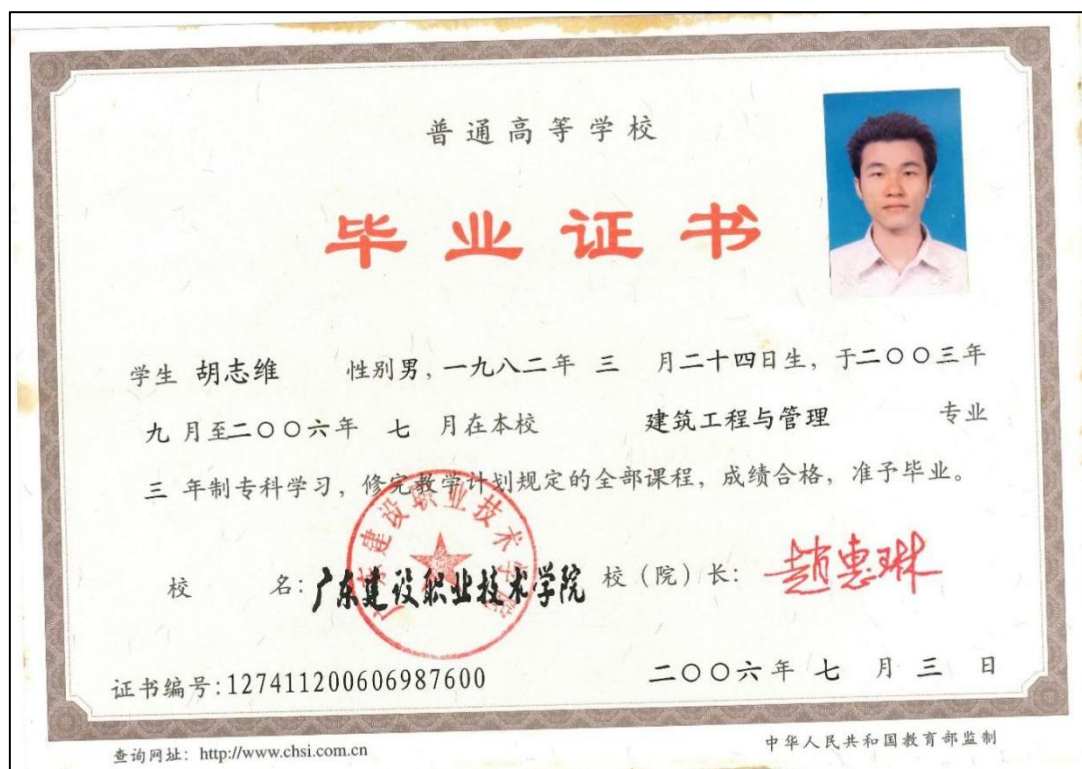 普通高等学校
毕业证书
学生 胡志维 性别男，一九八二年 三 月二十四日生，于二〇〇三年
九 月至二〇〇六年 七 月在本校 建筑工程与管理 专业
三 年制专科学习，修完教学计划规定的全部课程，成绩合格，准予毕业。
广东建设职业技术学院
校 名：广东建设职业技术学院 校（院）长：赵惠琳
证书编号：127411200606987600 二〇〇六年 七 月 三 日
查询网址：http://www.chsi.com.cn 中华人民共和国教育部监制